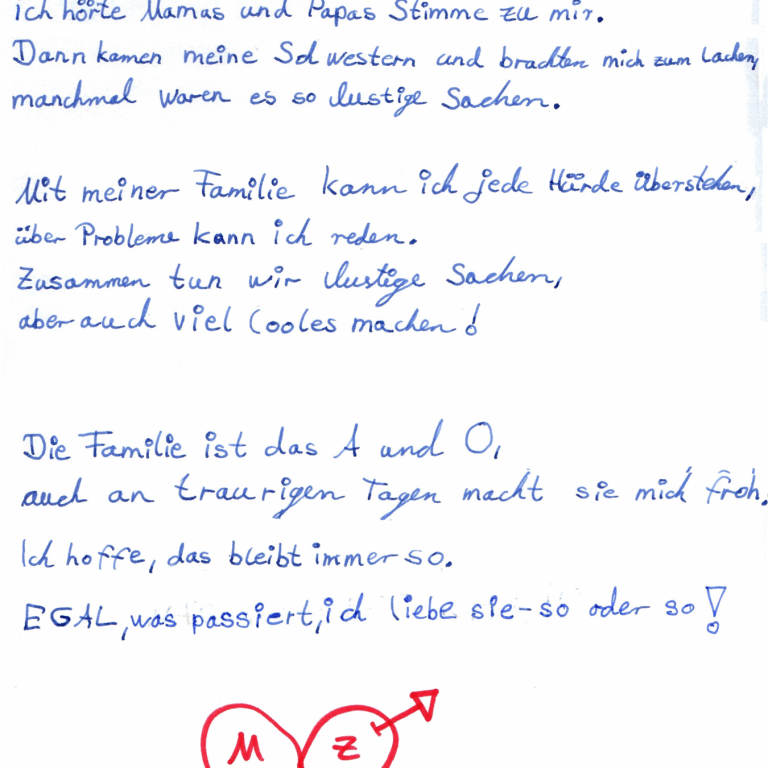 ich hörte Mamas und Papas Stimme zu mir.
Dann kamen meine Schwestern und brachten mich zum Lachen,
manchmal waren es so lustige Sachen.
Mit meiner Familie kann ich jede Hürde überstehen,
über Probleme kann ich reden.
Zusammen tun wir lustige Sachen,
aber auch viel Cooles machen!
Die Familie ist das A und O,
auch an traurigen Tagen macht sie mich froh.
Ich hoffe, das bleibt immer so.
EGAL, was passiert, ich liebe sie - so oder so!
M Z